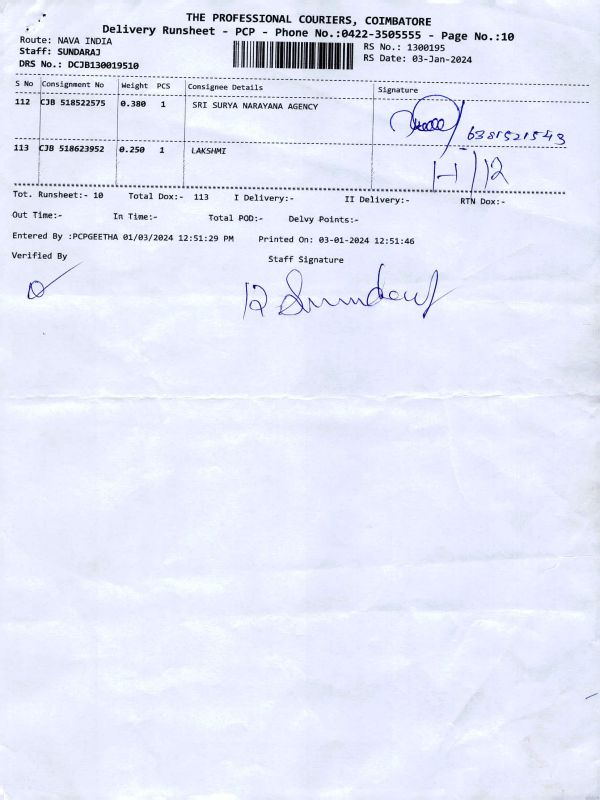 THE PROFESSIONAL COURIERS, COIMBATORE
Delivery Runsheet - PCP - Phone No.:0422-3505555 - Page No.:10
Route: NAVA INDIA
RS No.: 1300195
Staff: SUNDARAJ
RS Date: 03-Jan-2024
DRS No.: DCJB130019510
S No Consignment No Weight PCS Consignee Details Signature
112 CJB 518522575 0.380 1 SRI SURYA NARAYANA AGENCY
6381521543
113 CJB 518623952 0.250 1 LAKSHMI
Tot. Runsheet:- 10 Total Dox:- 113 I Delivery:- II Delivery:- RTN Dox:-
Out Time:- In Time:- Total POD:- Delvy Points:-
Entered By :PCPGEETHA 01/03/2024 12:51:29 PM Printed On: 03-01-2024 12:51:46
Verified By Staff Signature